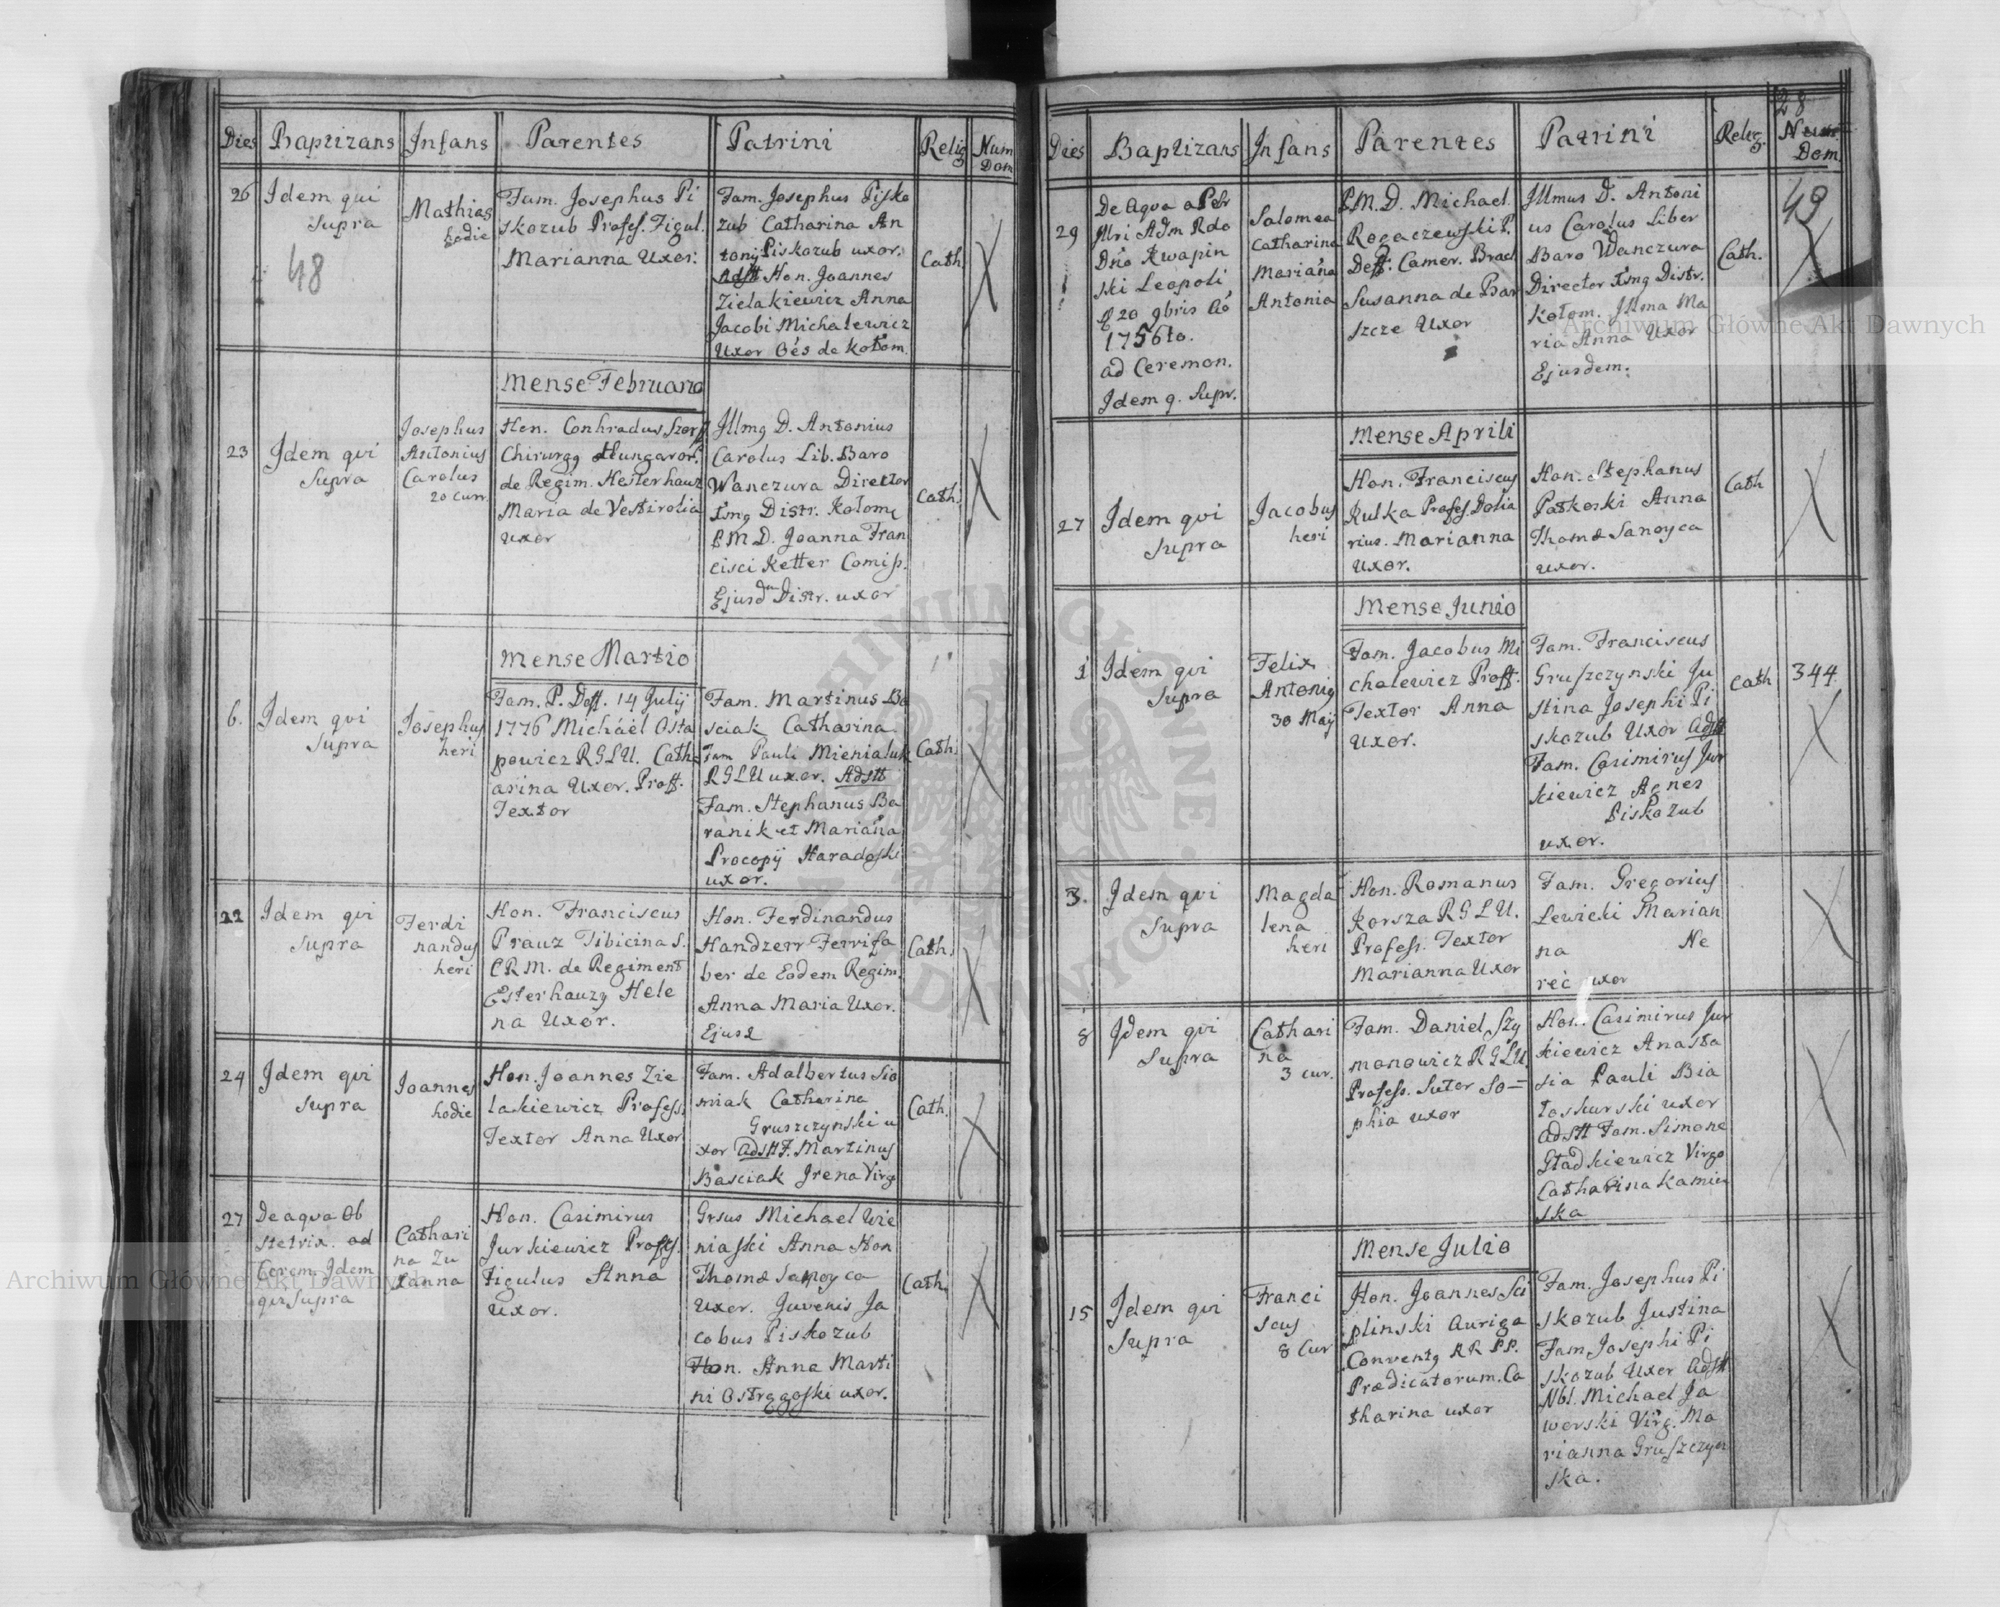 Dies Baptizans Infans Parentes Patrini Relig Num Dom
26
Idem qui
supra
48
Mathias
hodie
Fam. Josephus Pi
skozub Profes. Figul.
Marianna Uxor.
Fam. Josephus Pisko
zub Catharina An
tonij Piskozub uxor.
Adstt Hon. Joannes
Zielakiewicz Anna
Jacobi Michalewicz
Uxor Oēs de Kołom.
Cath.
Mense Februario
23
Idem qui
supra
Josephus
Antonius
Carolus
20 curr.
Hon. Conhradus
Chirurgg Hungaror.
de Regim. Hesterhauz
Maria de Vestirolia
uxor
Illmg D. Antonius
Carolus Lib. Baro
Wanczura Director
Distr. Kolom
P.M.D. Joanna Fran
cisci Ketter Comiss.
Ejusdm Distr. uxor
Cath.
Mense Martio
6.
Idem qui
supra
Josephus
heri
Fam. P. Deff. 14 Julij
1776 Michäel Osta
powicz RGLU. Cath
arina Uxor. Proff.
Textor
Fam. Martinus Ba
sciak Catharina
Fam Pauli Mienialuk
RGLU uxor. Adstt
Fam. Stephanus Ba
ranik et Marianna
Procopij Haradoski
uxor.
Cath.
22
Idem qui
supra
Ferdi
nandus
heri
Hon. Franciscus
Prauz Tibicina S.
C R M. de Regiment
Esterhauzy Hele
na Uxor.
Hon. Ferdinandus
Handzerr Ferrifa
ber de Eodem Regim.
Anna Maria Uxor.
Ejusd
Cath.
24
Idem qui
supra
Joannes
hodie
Hon. Joannes Zie
lakiewicz Profess.
Textor Anna Uxor
Fam. Adalbertus Sio
miak Catharina
Gruszczynski u
xor adstt F. Martinus
Basciak Irena Virgo
Cath.
27
De aqua Ob
stetrix. ad
Cerem. Idem
qui supra
Cathari
na Zu
zanna
Hon. Casimirus
Jurkiewicz Profess.
Figulus Anna
Uxor.
Grsus Michael Wie
niaski Anna Hon
Thomæ Sanoyca
Uxor. Juvenis Ja
cobus Piskozub
Hon. Anna Marti
ni Ostrogoski uxor.
Cath.
28
Dies Baptizans Infans Parentes Patrini Relig. Num Dom
29
De aqua a Per
Illri Adm Rdo
Dno Kwapin
ski Leopoli
20 9bris Ao
1756to.
ad Ceremon.
Idem q. supr.
Salomea
Catharina
Marianna
Antonia
P.M.D. Michael
Rogaczewski P.
Deff. Camer. Bracl
Susanna de Bar
szcze Uxor
Illmus D. Antoni
us Carolus Liber
Baro Wanczura
Director Distr.
Kołom. Illma Ma
ria Anna Uxor
Ejusdem.
Cath.
49
Mense Aprili
27
Idem qui
supra
Jacobus
heri
Hon. Franciscus
Kulka Profes. Dolia
rius. Marianna
Uxor.
Hon. Stephanus
Patkoski Anna
Thomæ Sanoyca
uxor.
Cath
Mense Junio
1
Idem qui
supra
Felix
Antonig
30 Maij
Fam. Jacobus Mi
chalewicz Proff.
Textor Anna
Uxor.
Fam. Franciscus
Gruszczynski Ju
stina Josephi Pi
skozub Uxor adstt
Fam. Casimirus Jur
kiewicz Agnes
Piskozub
uxor.
Cath
344
3.
Idem qui
supra
Magda
lena
heri
Hon. Romanus
Korsza RGLU.
Profess. Textor
Marianna Uxor
Fam. Gregorius
Lewicki Marian
na Ne
reć uxor
8
Idem qui
supra
Cathari
na
3 cur.
Fam. Daniel Szy
monowicz RGLU
Profess. Sutor So-
phia uxor
Hon. Casimirus Jur
kiewicz Anasta
sia Pauli Bia
toskurski uxor
adstt Fam. Simone
Gładkiewicz Virgo
Catharina Kamien
ska
Mense Julio
15
Idem qui
supra
Franci
scus
8 Cur
Hon. Joannes Sci
plinski Auriga
Conventg RR PP.
Prædicatorum. Ca
tharina uxor
Fam. Josephus Pi
skozub Justina
Fam Josephi Pi
skozub Uxor adstt
Nbl. Michael Ja
worski Virg. Ma
rianna Gruszczyn
ska.
Archiwum Główne Akt Dawnych
Archiwum Główne Akt Dawnych
ARCHIWUM GŁÓWNE AKT DAWNYCH